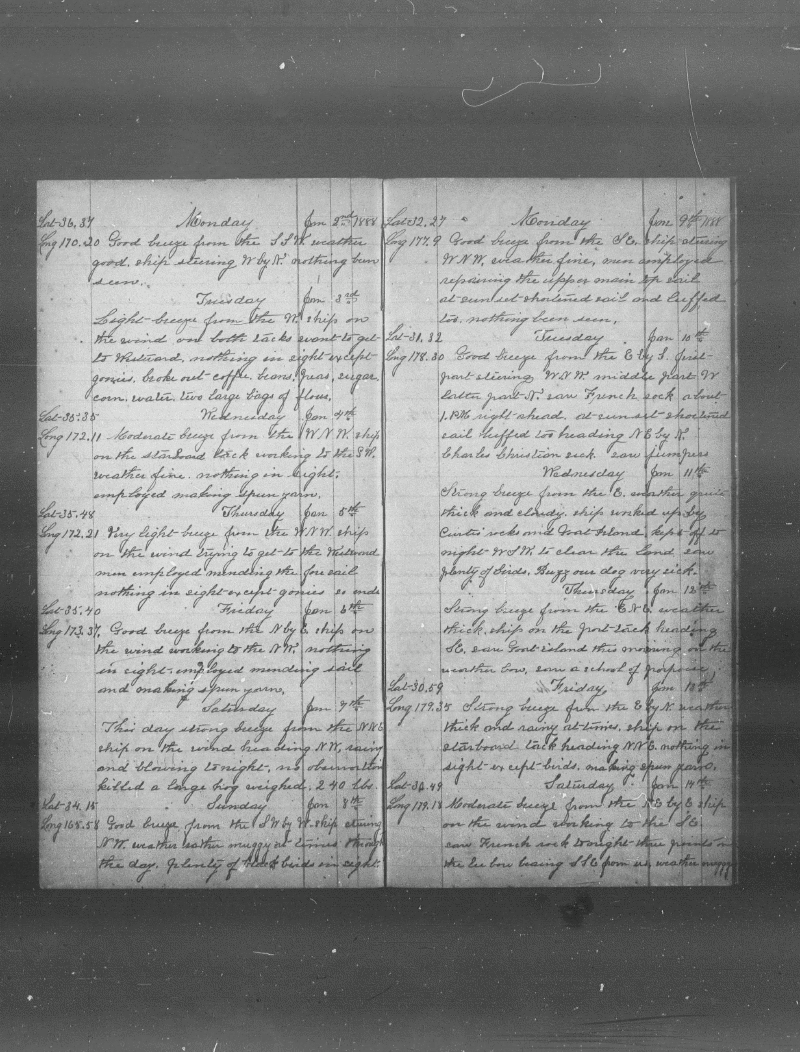 Lat-36.37 Monday Jan 2nd 1888
Lng 170.20 Good breeze from the S S W. weather
good. ship steering W by N. nothing bun
seen.
Tuesday Jan 3rd
Light breeze from the W. ship on
the wind on both tacks want to get
to Westward, nothing in sight except
gonies. broke out coffee, beans, peas, sugar
corn. water. two large bags of flour.
Lat-35.35 Wednesday Jan 4th
Long 172.11 Moderate breeze from the W.N.W. ship
on the starboard tack working to the S.W.
weather fine. nothing in sight.
employed making spun yarn.
Lat-35.48 Thursday Jan 5th
Lng 172.21 Very light breeze from the W.N.W. ship
on the wind trying to get to the Westward
men employed mending the fore sail
nothing in sight except gonies so ends
Lat-35.40 Friday Jan 6th
Lng 173.37. Good breeze from the N by E ship on
the wind working to the N.W. nothing
in sight. employed mending sail
and making spun yarn.
Saturday Jan 7th
This day strong breeze from the N.N.E
ship on the wind heading N.W. rainy
and blowing to night, no observation
killed a large hog weighed. 240 lbs.
Lat-34.15 Sunday Jan 8th
Long 165.58 Good breeze from the S.W by W. ship steering
N.W. weather rather muggy at times through
the day. plenty of black birds in sight.
Lat-32.27 Monday Jan 9th 1888
Lng 177.9 Good breeze from the S.E. ship steering
W.N.W. weather fine, men employed
repairing the upper main top sail
at sun set shortened sail and luffed
too. nothing been seen.
Lat-31.32 Tuesday Jan 10th
Lng 178.30 Good breeze from the E by S. first
part steering W.N.W. middle part W
latter part N. saw French rock about
1. P.M. right ahead. at sun set shortened
sail luffed too heading N.E by N.
Charles Christian sick. saw jumpers
Wednesday Jan 11th
Strong breeze from the E. weather quite
thick and cloudy. ship worked up by
Curtis rocks and Goat Island, kept off to
night W.S.W. to clear the land saw
plenty of birds. Buzz our dog very sick.
Thursday Jan 12th
Strong breeze from the E.N.E. weather
thick. ship on the port tack heading
S.E. saw Goat island this morning on the
weather bow, saw a school of porpoise
Lat-30.59 Friday Jan 13th
Long 179.35 Strong breeze from the E by N. weather
thick and rainy at times. ship on the
starboard tack heading N.N.E. nothing in
sight except birds. making spun yarn.
Lat-30.49 Saturday Jan 14th
Lng 179.18 Moderate breeze from the N.E by E ship
on the wind working to the S.E.
saw French rock to night three points on
the lee bow bearing S.S.E from us, weather muggy